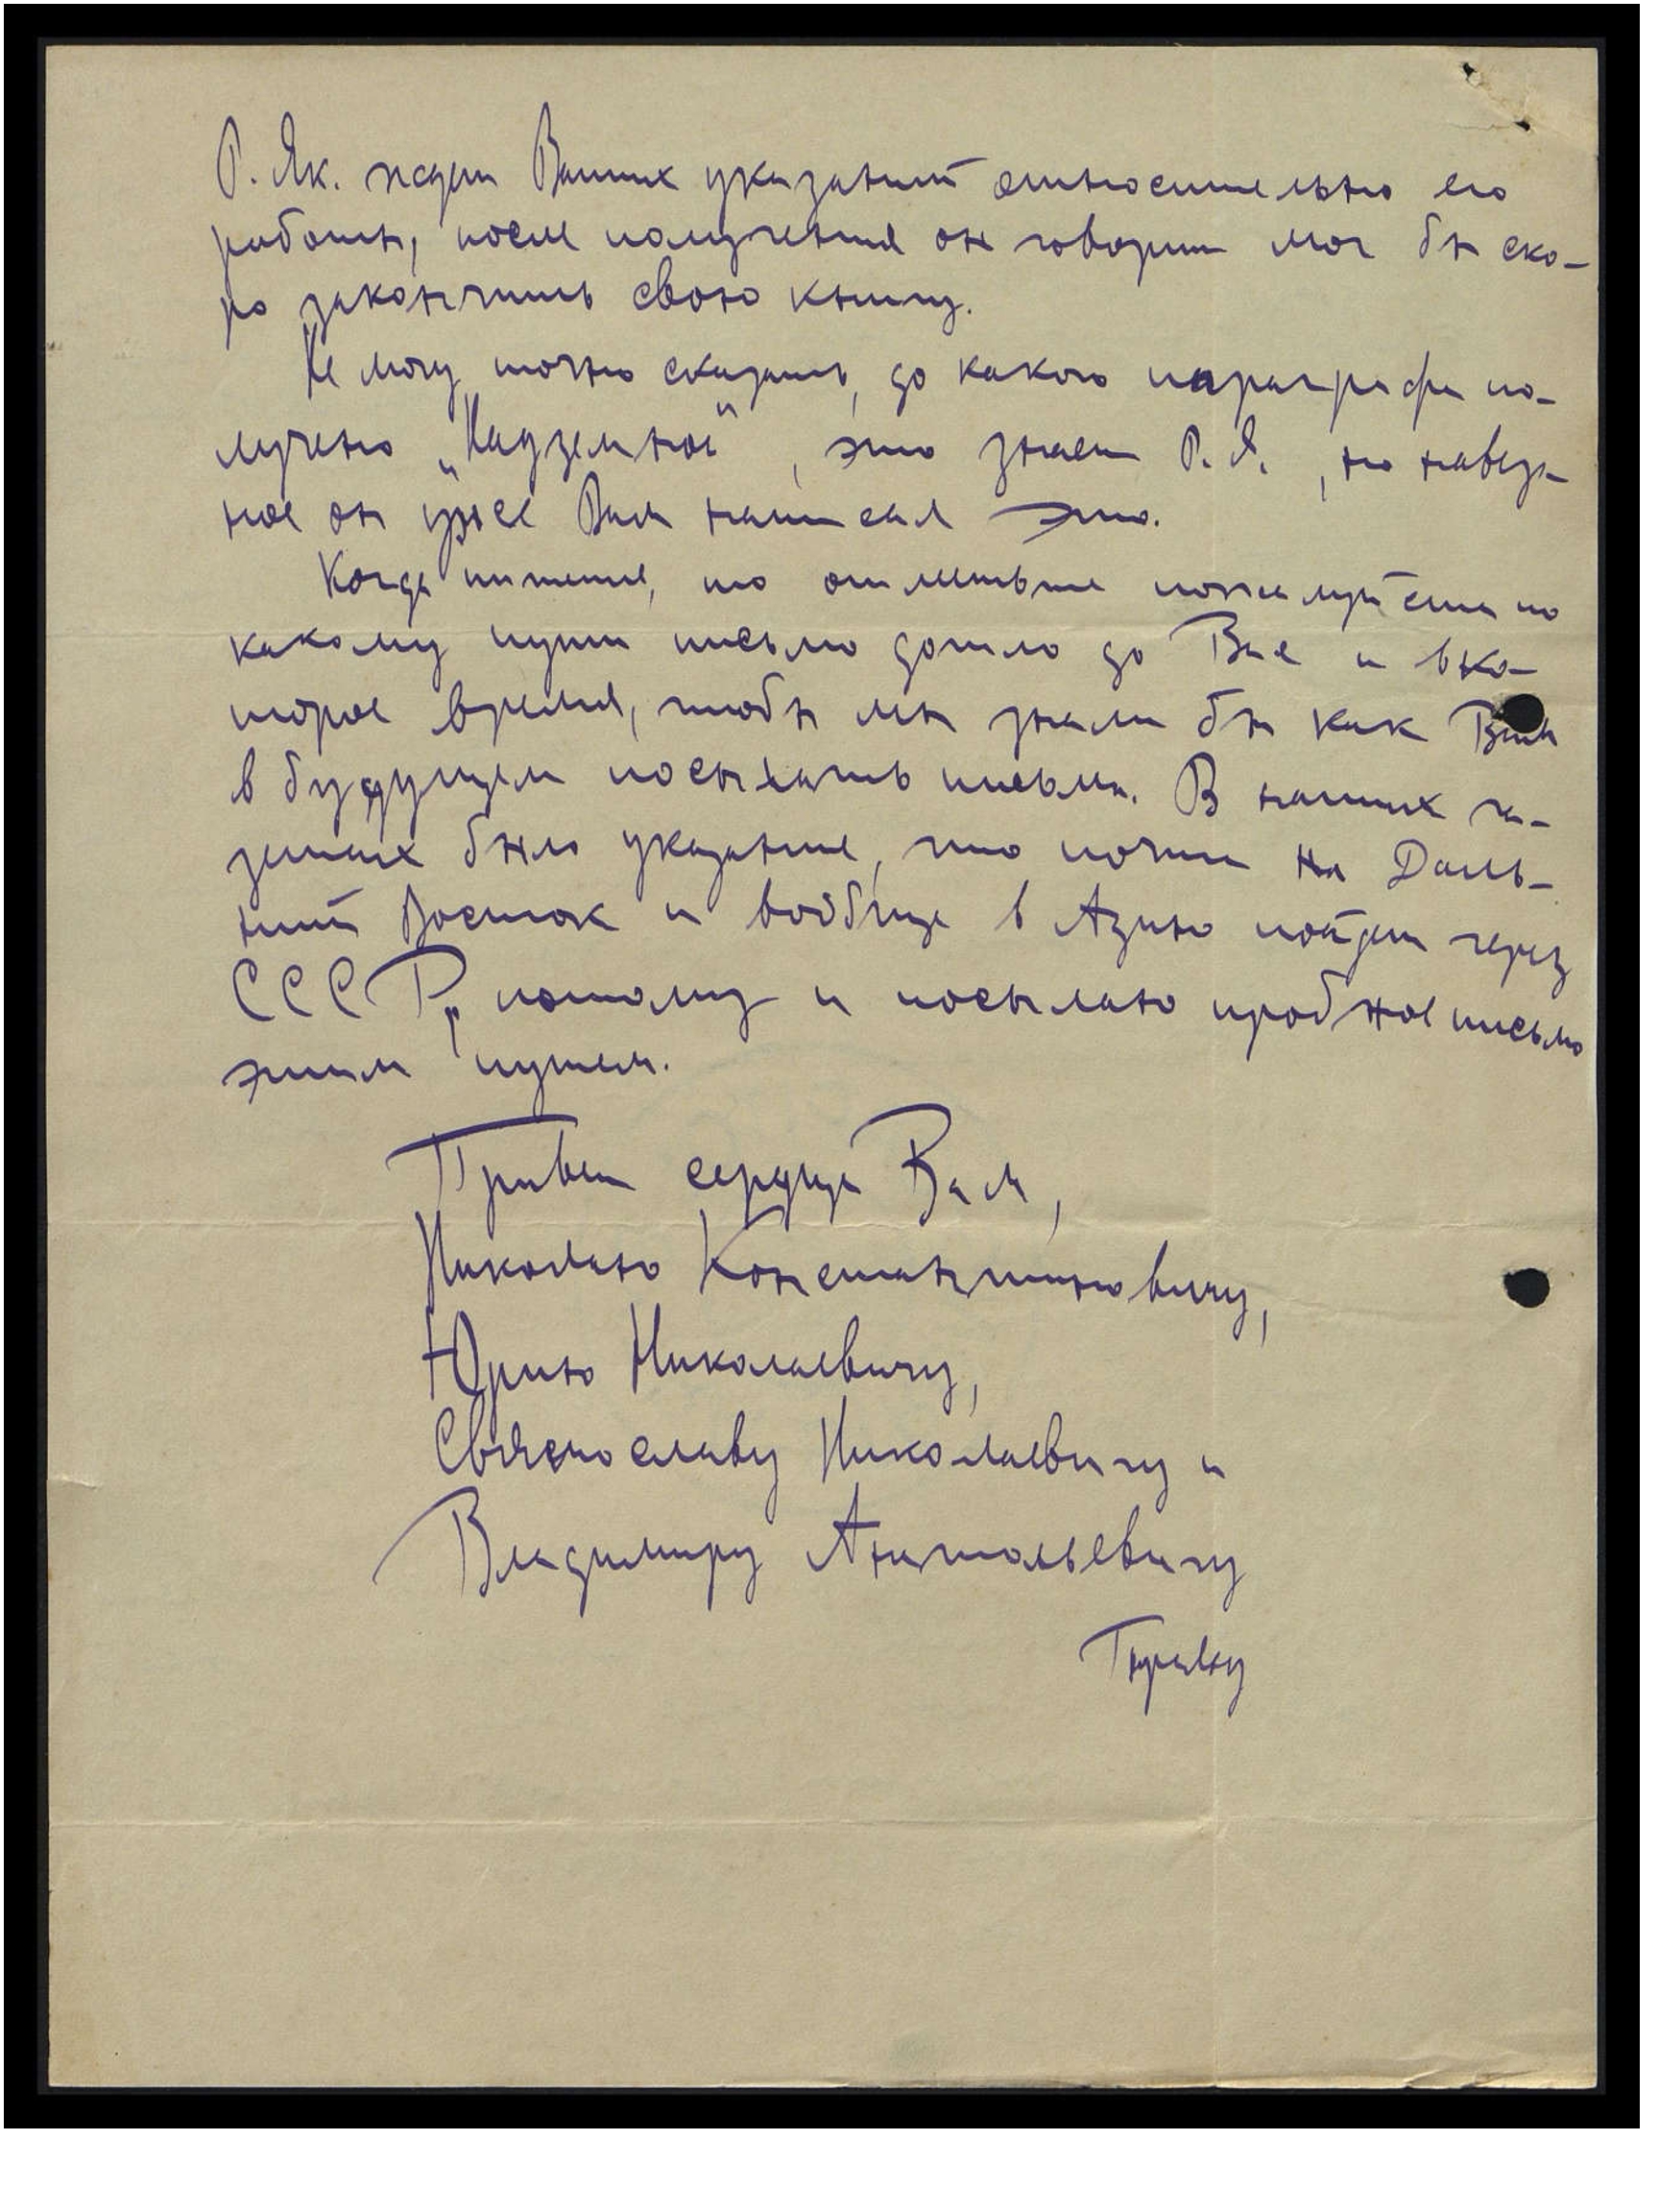 Р. Як. ждет Ваших указаний относительно его
работы, после получения он говорит мог бы ско-
ро закончить свою книгу.
Не могу точно сказать, до какого параграфа по-
лучено „Надземное", это знает Р. Я., но наверн
ное он уже Вам написал это.
Когда пишете, то отметьте пожалуйста по
какому пути письмо дошло до Вас и в ко-
торое время, чтобы мы знали бы как Вам
в будущем посылать письма. В наших га-
зетах было указание, что почта на Даль-
ний Восток и вообще в Азию пойдет через
СССР, потому и посылаю пробное письмо
этим путем.
Привет сердца Вам,
Николаю Константиновичу,
Юрию Николаевичу,
Святославу Николаевичу и
Владимиру Анатольевичу